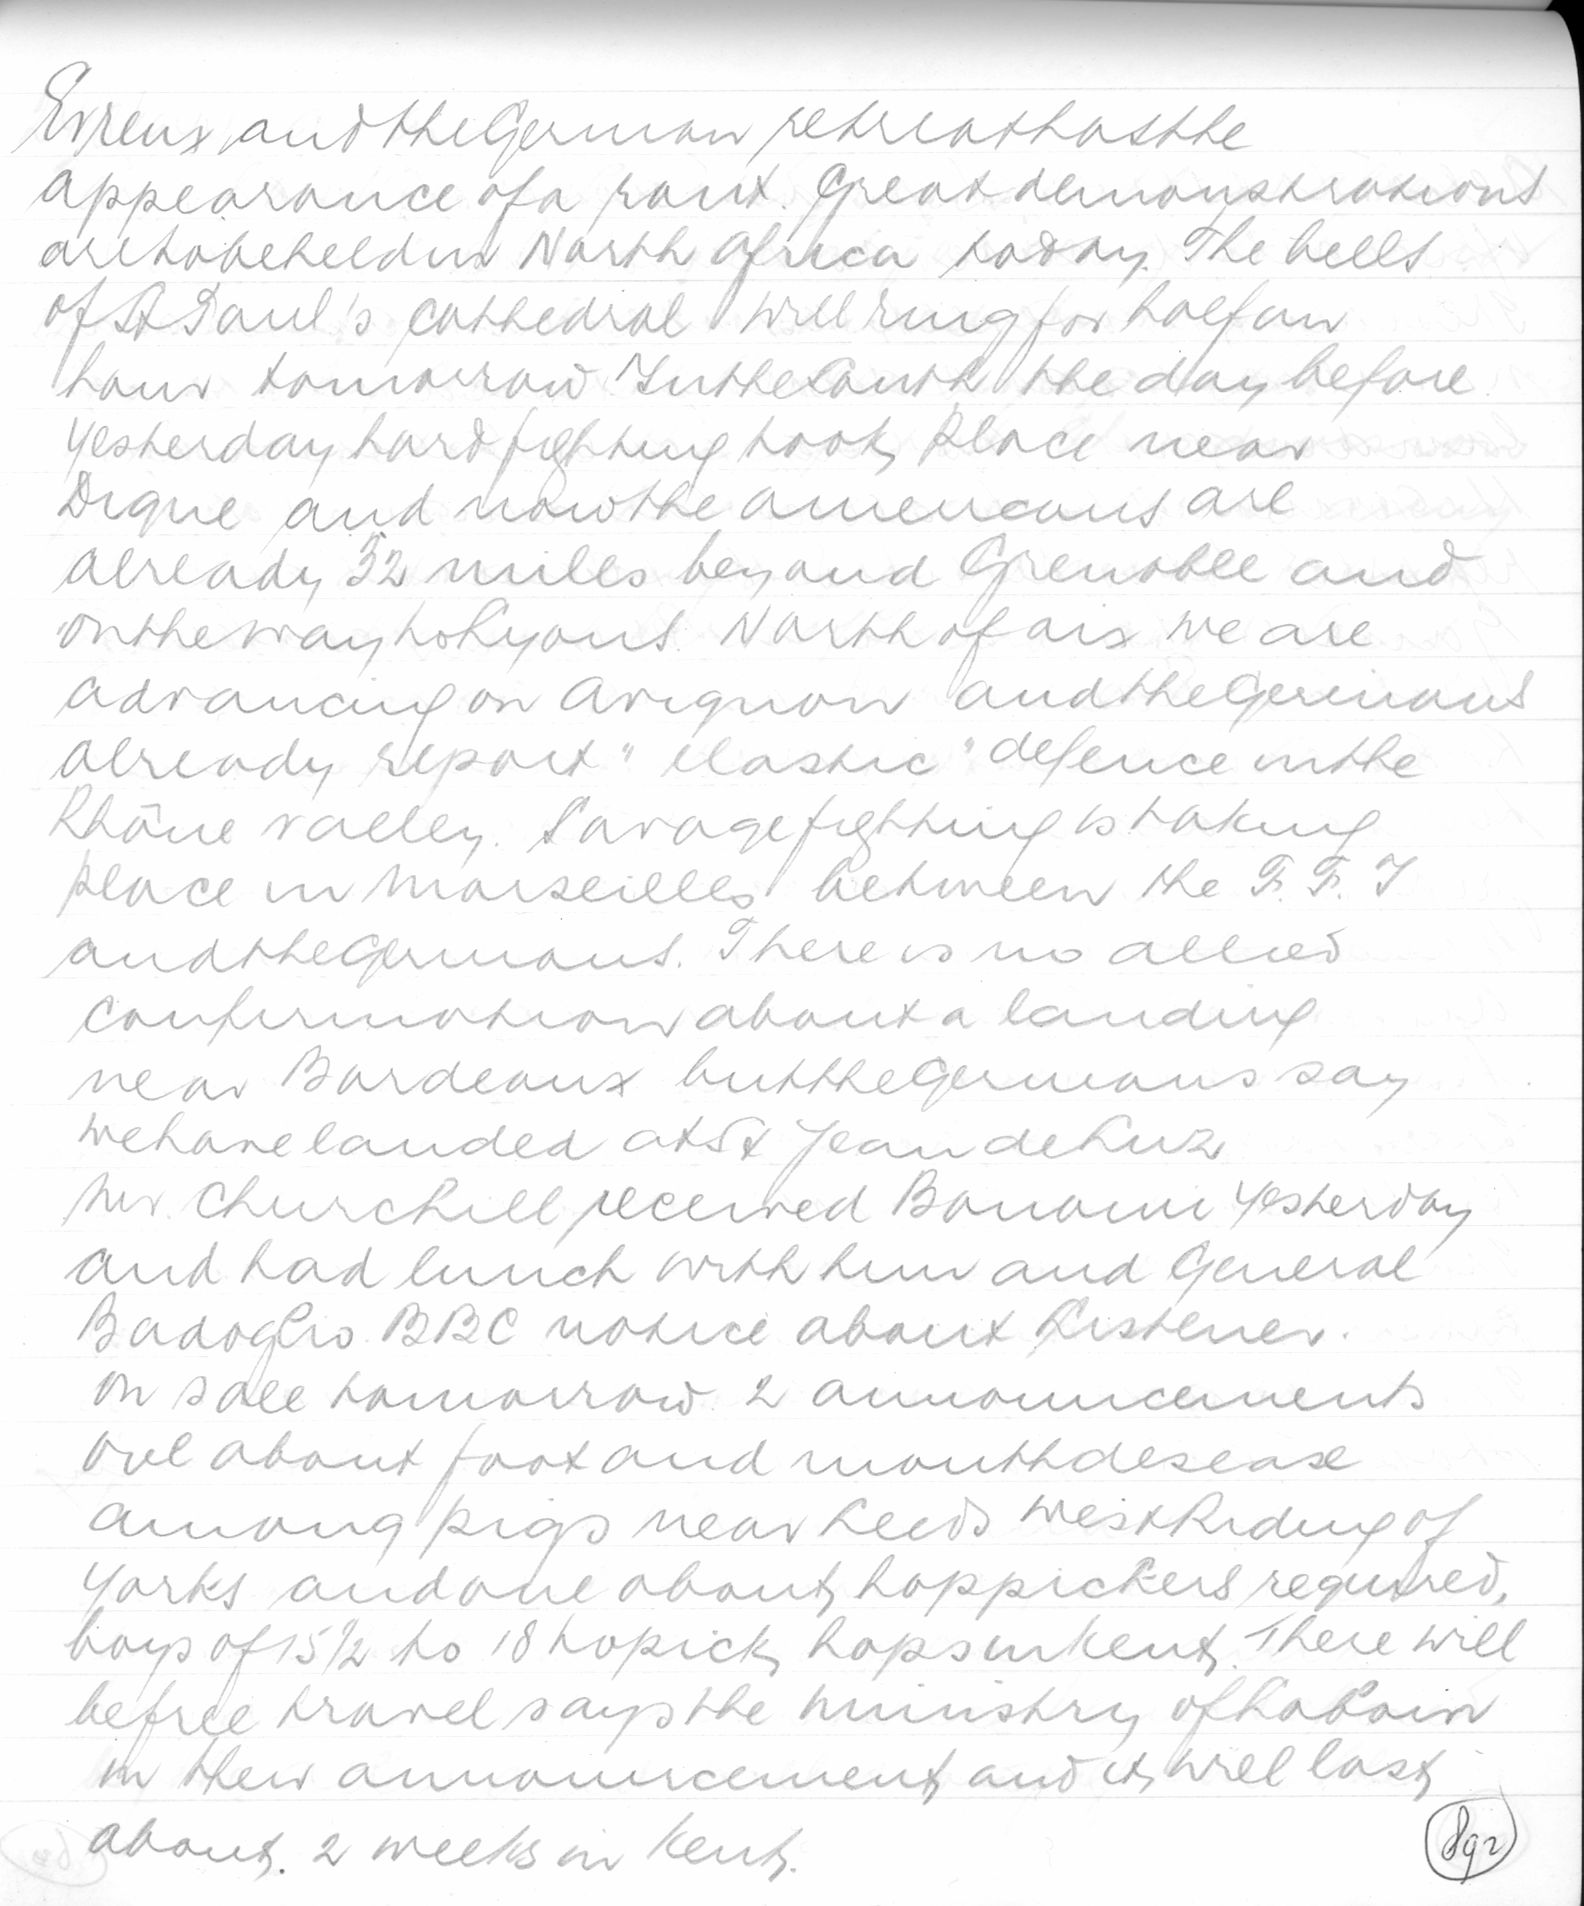 Evreux and the German retreat has the
appearance of a rout. Great demonstrations
are to be held in North Africa today. The bells
of St Paul's Cathedral will ring for half an
hour tomorrow. In the South the day before
yesterday hard fighting took place near
Digne and now the americans are
already 32 miles beyond Grenoble and
on the way to Lyons. North of aix we are
advancing on Avignon and the Germans
already report "elastic" defence in the
Rhône valley. Savage fighting is taking
place in Marseilles between the F.F.I
and the Germans. There is no allied
confirmation about a landing
near Bordeaux but the Germans say
we have landed at St Jean de Luz
Mr. Churchill received Bonomi yesterday
and had lunch with him and General
Badoglio. BBC notice about Listener.
on sale tomorrow. 2 announcements
one about foot and mouth desease
among pigs near Leeds West Riding of
Yorks and one about hoppickers required,
boys of 15 1/2 to 18 to pick hops in Kent. There will
be free travel says the Ministry of Labour
in their announcement and it will last
about. 2 weeks in Kent.
892